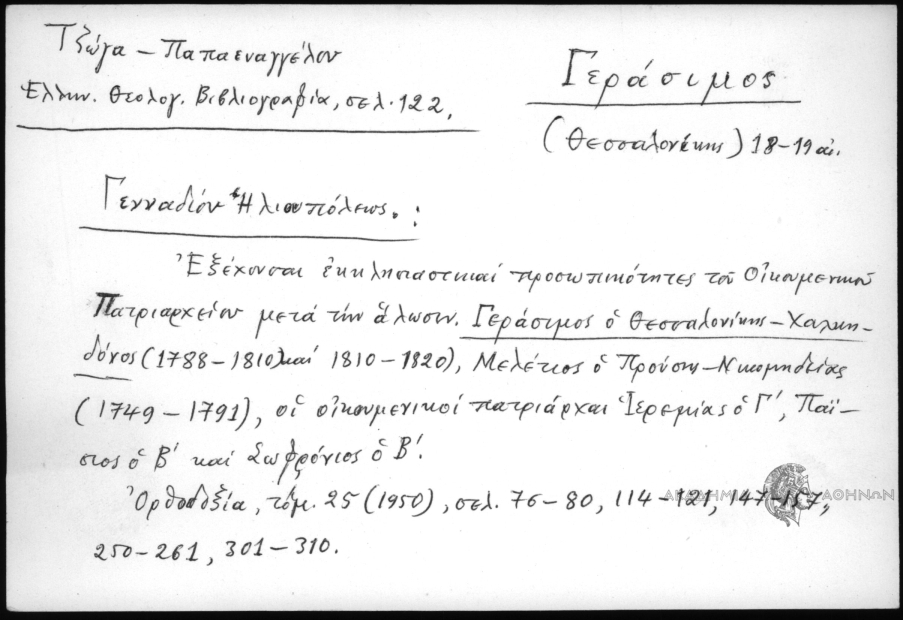 Τζώγα – Παπαευαγγέλου
Ἑλλην. Θεολογ. Βιβλιογραφία, σελ. 122.
Γεράσιμος
(Θεσσαλονίκης) 18–19 αἰ.
Γενναδίου Ἡλιουπόλεως. :
Ἐξέχουσαι ἐκκλησιαστικαί προσωπικότητες τοῦ Οἰκουμενικοῦ
Πατριαρχείου μετά τήν ἅλωσιν. Γεράσιμος ὁ Θεσσαλονίκης – Χαλκη-
δόνος (1788–1810) καί 1810–1820), Μελέτιος ὁ Προύσης – Νικομηδείας
(1749–1791), οἱ οἰκουμενικοί πατριάρχαι Ἱερεμίας ὁ Γ΄, Παΐ-
σιος ὁ Β΄ καί Σωφρόνιος ὁ Β΄.
Ὀρθοδοξία, τόμ. 25 (1950), σελ. 76–80, 114–121, 147–157,
250–261, 301–310.
ΑΚΑΔΗΜΙΑ ΑΘΗΝΩΝ